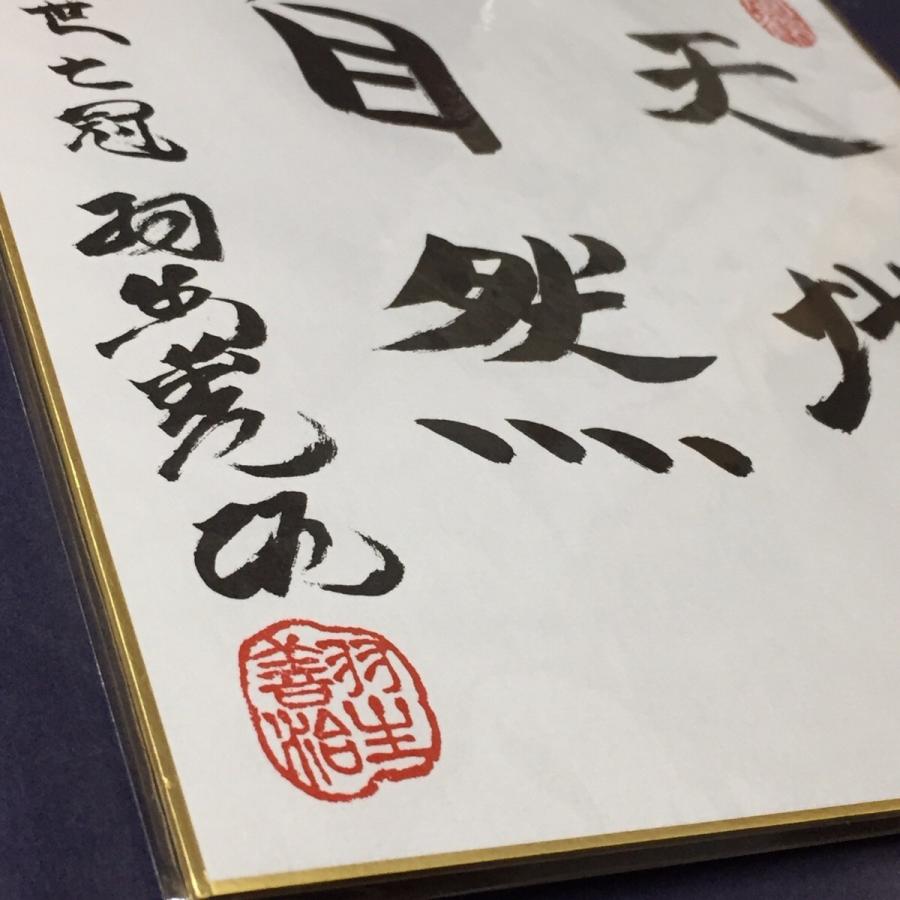 天
自然
世七冠 羽生善治
羽生
善治